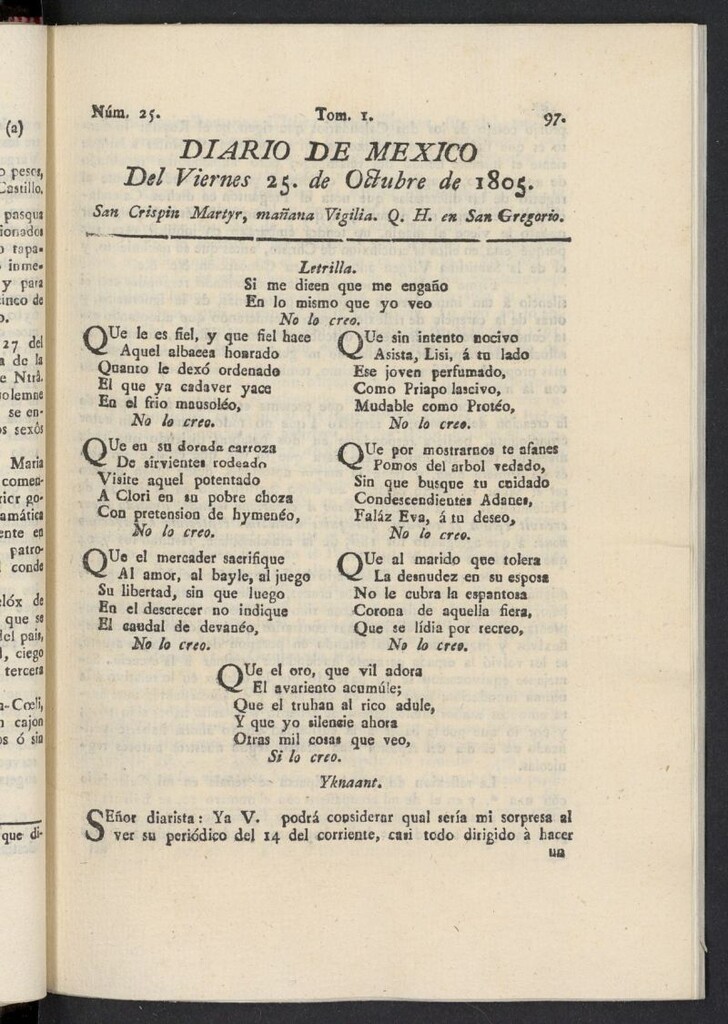 (a)
pesos,
Castillo.
pasqua
ionados
tapa-
inme-
y para
cinco de
o.
27 del
a de la
e Ntrâ.
solemne
se en-
os sexôs
Maria
comen-
rior go-
amática
ente en
patro-
conde
lóx de
que se
del pais,
ciego
tercera
a-Cœli,
cajon
os ó sin
que di-
Núm. 25. Tom. 1. 97.
DIARIO DE MEXICO
Del Viernes 25. de Octubre de 1805.
San Crispin Martyr, mañana Vigilia. Q. H. en San Gregorio.
Letrilla.
Si me dicen que me engaño
En lo mismo que yo veo
No lo creo.
QUe le es fiel, y que fiel hace
Aquel albacea honrado
Quanto le dexó ordenado
El que ya cadaver yace
En el frio mausoléo,
No lo creo.
QUe en su dorada carroza
De sirvientes rodeado
Visite aquel potentado
A Clori en su pobre choza
Con pretension de hymenéo,
No lo creo.
QUe el mercader sacrifique
Al amor, al bayle, al juego
Su libertad, sin que luego
En el descrecer no indique
El caudal de devanéo,
No lo creo.
QUe sin intento nocivo
Asista, Lisi, á tu lado
Ese joven perfumado,
Como Priapo lascivo,
Mudable como Protéo,
No lo creo.
QUe por mostrarnos te afanes
Pomos del arbol vedado,
Sin que busque tu cuidado
Condescendientes Adanes,
Faláz Eva, á tu deseo,
No lo creo.
QUe al marido que tolera
La desnudez en su esposa
No le cubra la espantosa
Corona de aquella fiera,
Que se lídia por recreo,
No lo creo.
QUe el oro, que vil adora
El avariento acumúle;
Que el truhan al rico adule,
Y que yo silencie ahora
Otras mil cosas que veo,
Si lo creo.
Yknaant.
SEñor diarista: Ya V. podrá considerar qual sería mi sorpresa al
ver su periódico del 14 del corriente, casi todo dirigido à hacer
un